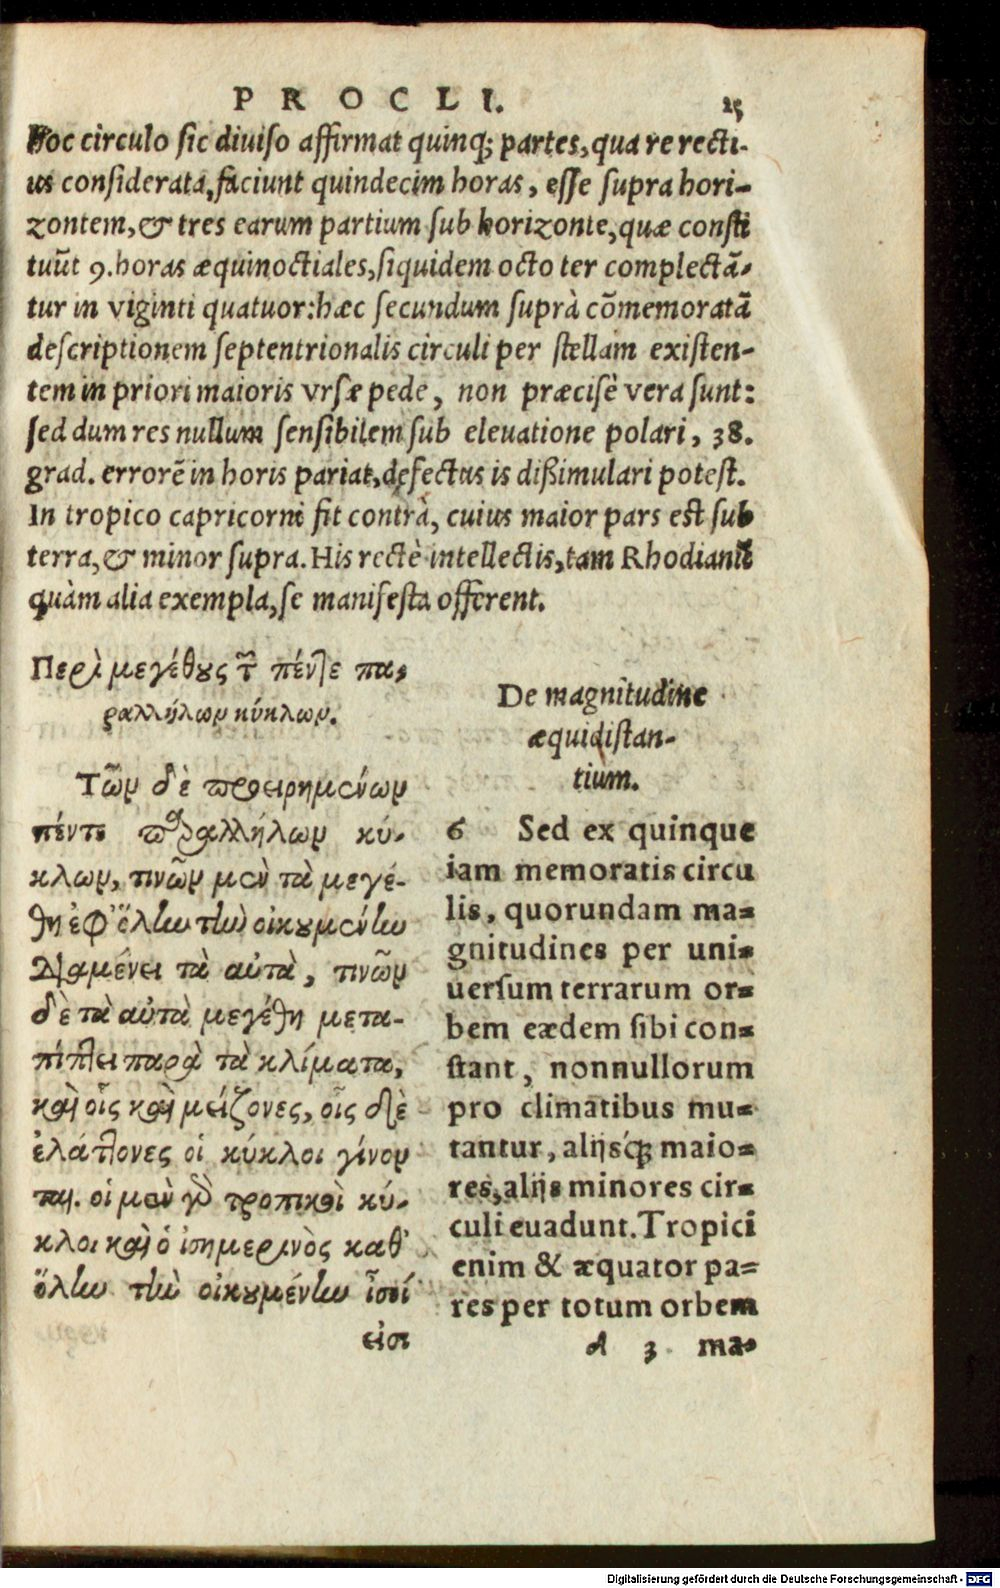 PROCLI. 25
Hoc circulo sic diuiso affirmat quinq; partes, qua re recti-
us considerata, faciunt quindecim horas, esse supra hori-
zontem, & tres earum partium sub horizonte, quæ consti
tuũt 9. horas æquinoctiales, siquidem octo ter complectã-
tur in viginti quatuor: hæc secundum suprà cõmemoratã
descriptionem septentrionalis circuli per stellam existen-
tem in priori maioris vrsæ pede, non præcisè vera sunt:
sed dum res nullum sensibilem sub eleuatione polari, 38.
grad. errorẽ in horis pariat, defectus is dißimulari potest.
In tropico capricorni fit contrà, cuius maior pars est sub
terra, & minor supra. His rectè intellectis, tam Rhodianū
quàm alia exempla, se manifesta offerent.
Περὶ μεγέθους τῶν πέντε πα-
ραλλήλων κύκλων.
Τῶν δὲ προειρημένων
πέντε παραλλήλων κύ-
κλων, τινῶν μὲν τὰ μεγέ-
θη ἐφ' ὅλην τὴν οἰκουμένην
διαμένει τὰ αὐτὰ, τινῶν
δὲ τὰ αὐτὰ μεγέθη μετα-
πίπτει παρὰ τὰ κλίματα,
καὶ οἷς καὶ μείζονες, οἷς δὲ
ἐλάττονες οἱ κύκλοι γίνον
ται. οἱ μὲν γὰρ τροπικοὶ κύ-
κλοι καὶ ὁ ἰσημερινὸς καθ'
ὅλην τὴν οἰκουμένην ἴσοί
εἰσι
De magnitudine
æquidistan-
tium.
6 Sed ex quinque
iam memoratis circu
lis, quorundam ma-
gnitudines per uni-
uersum terrarum or-
bem eædem sibi con-
stant, nonnullorum
pro climatibus mu-
tantur, alijsq́; maio-
res, alijs minores cir-
culi euadunt. Tropici
enim & æquator pa-
res per totum orbem
A 3 ma-
Digitalisierung gefördert durch die Deutsche Forschungsgemeinschaft - DFG